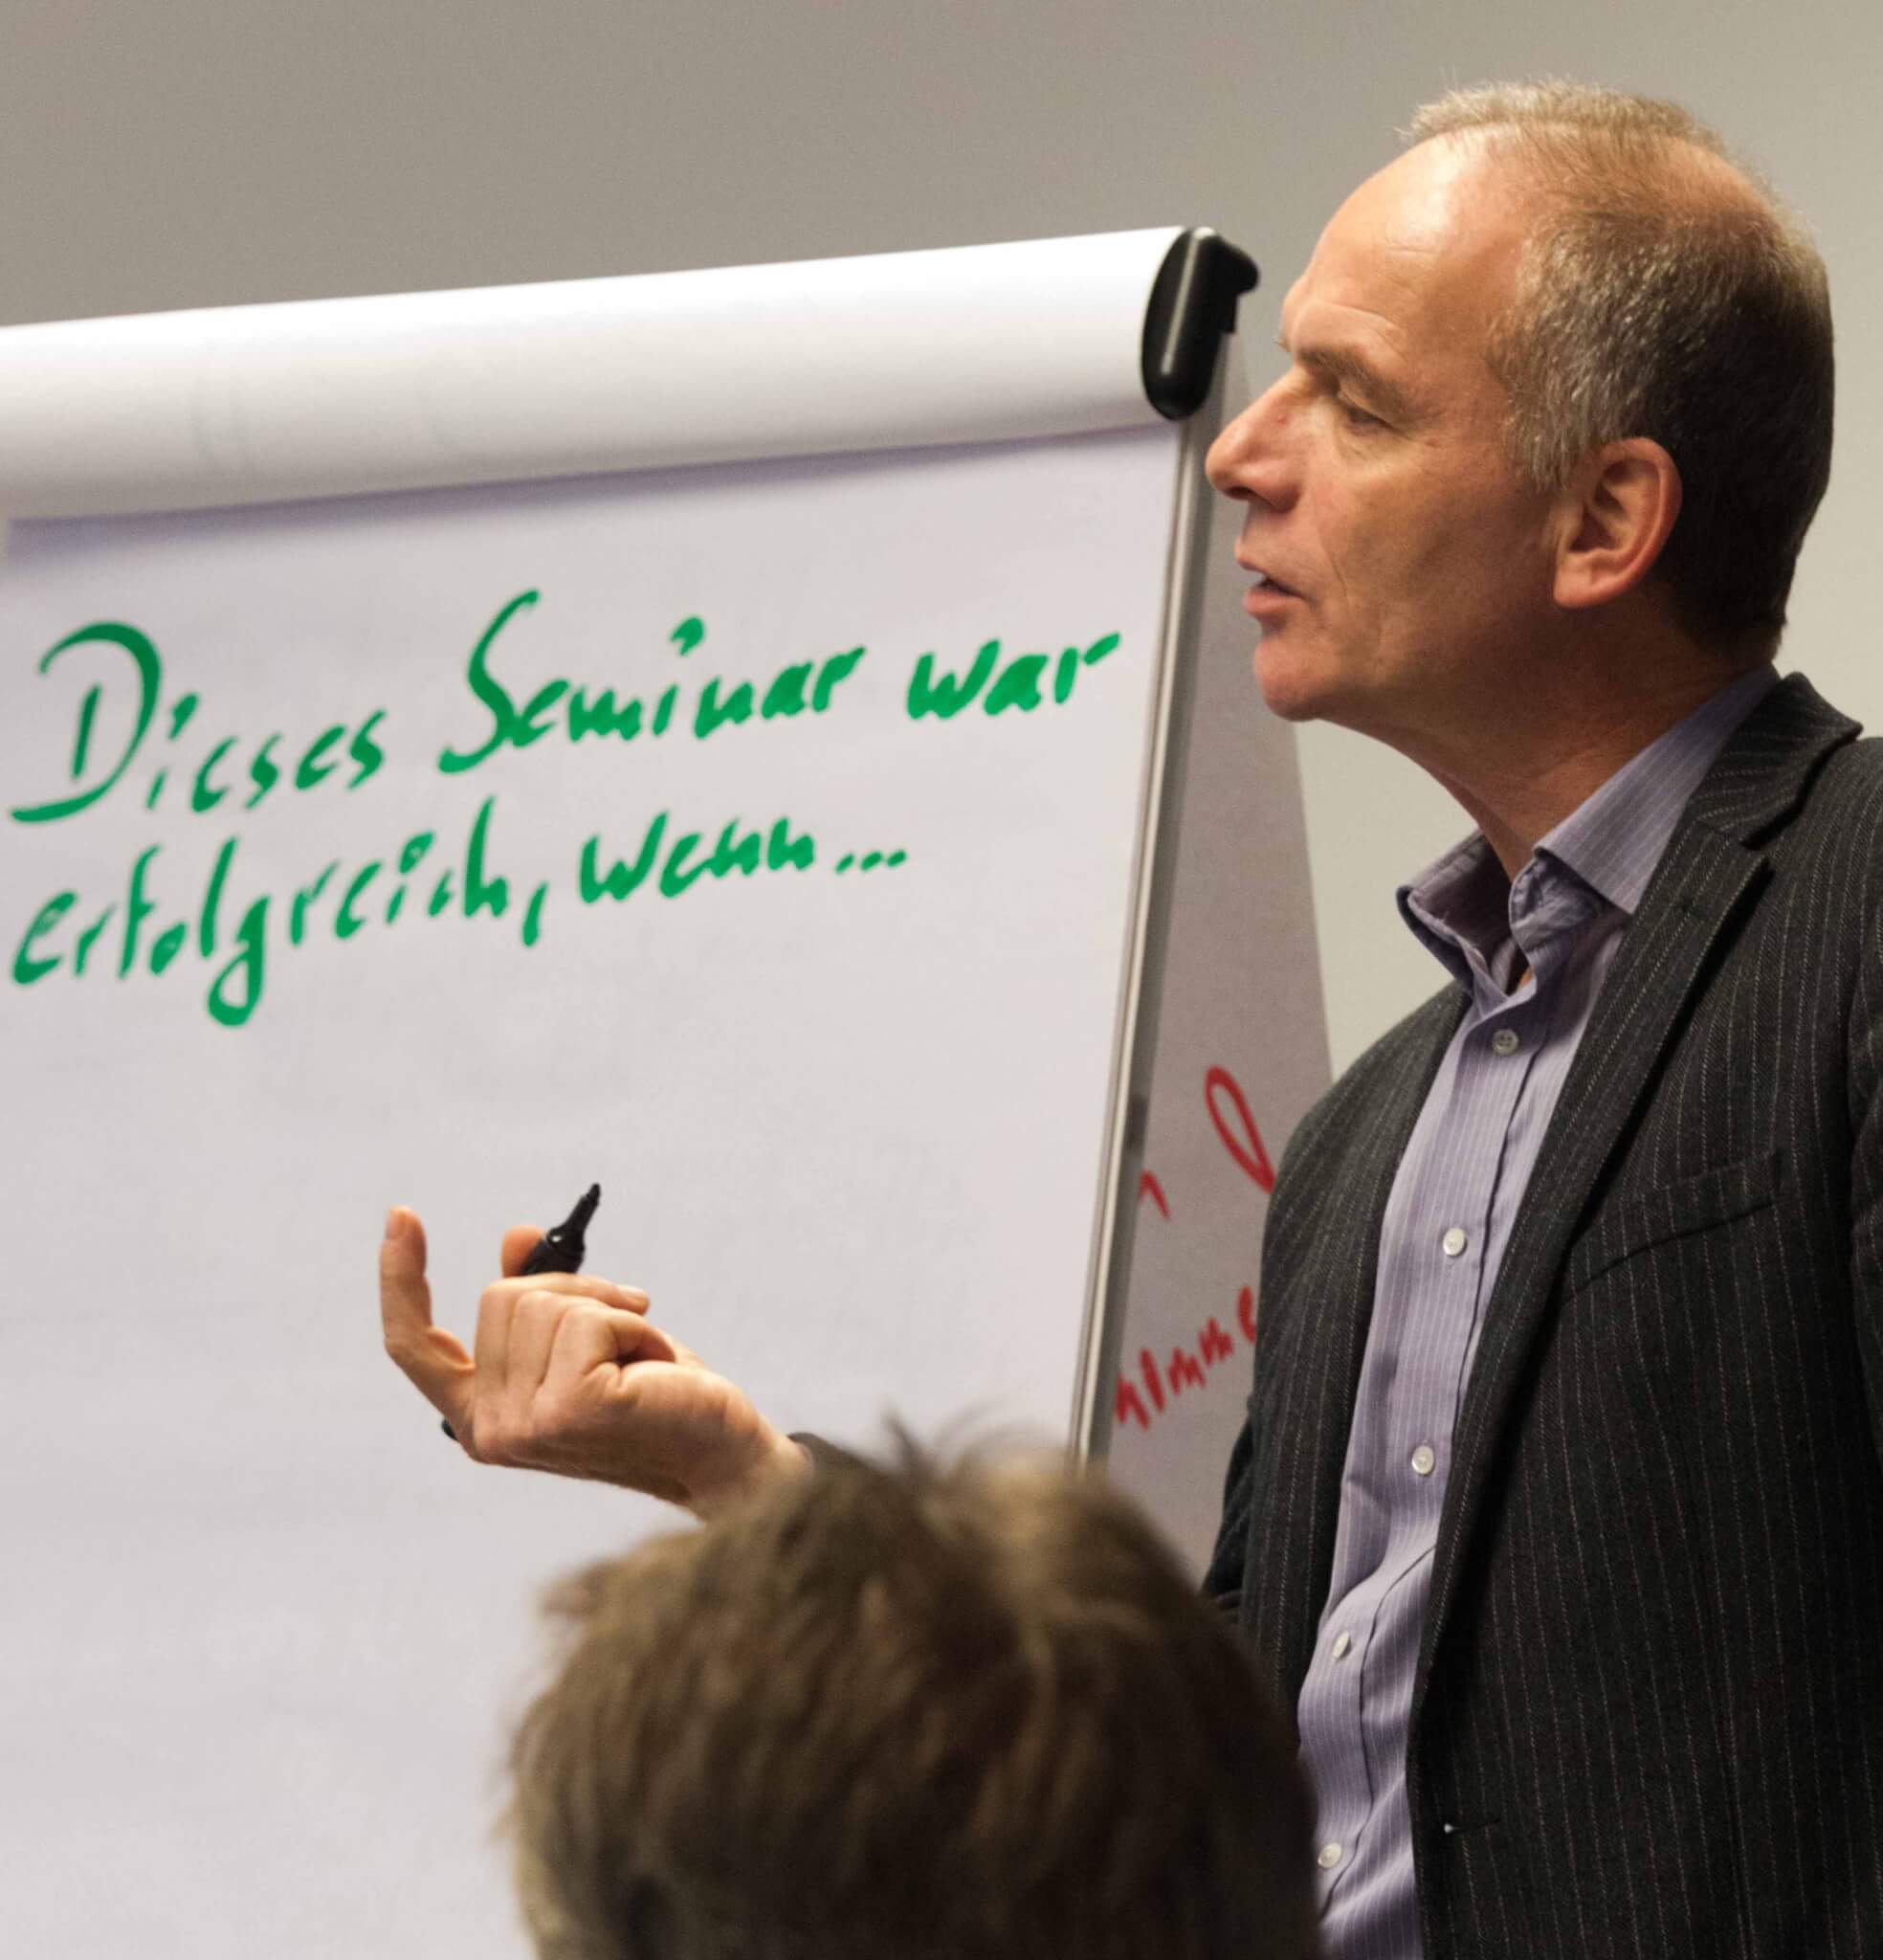 Dieses Seminar war
erfolgreich, wenn...